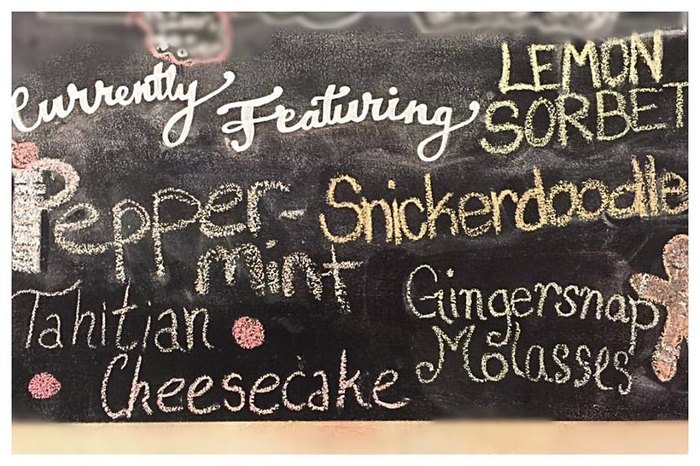 Currently Featuring
LEMON
SORBET
Pepper-
mint
Snickerdoodle
Tahitian
Cheesecake
Gingersnap
Molasses